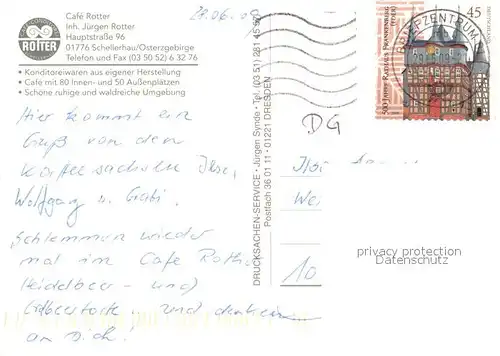 Café Rotter
Inh. Jürgen Rotter
Hauptstraße 96
01776 Schellerhau/Osterzgebirge
Telefon und Fax (03 50 52) 6 32 76
ROTTER
• Konditoreiwaren aus eigener Herstellung
• Cafe mit 80 Innen- und 50 Außenplätzen
• Schöne ruhige und waldreiche Umgebung
Hier kommt ein
Gruß von den
Kaffeesachsen Ilse,
Wolfgang u. Gabi.
Schlemmen wieder
mal im Cafe Rotter
Heidelbeer- und
Erdbeertorte und denken
an Dich!
DRUCKSACHEN-SERVICE • Jürgen Synde • Tel. (03 51) 281 45 57
Postfach 36 01 11 • 01221 DRESDEN
DG
BRIEFZENTRUM
45
500 Jahre Rathaus Frankenberg (Eder)
We
10
privacy protection
Datenschutz